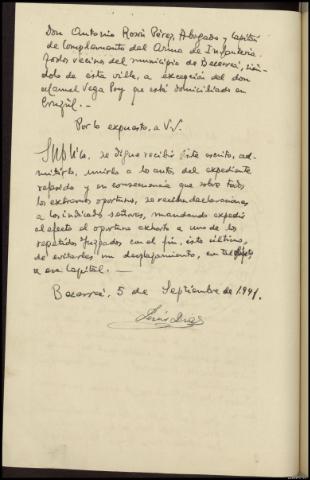 Don Antonio Rosón Pérez, Abogado y Capitán
de Complemento del Arma de Infantería.
Todos vecinos del municipio de Becerreá, sién-
dolo de esta villa, a excepción del don
Manuel Vega Poy que está domiciliado en
Cruzul.-
Por lo expuesto, a V.S.
Suplico, se digne recibir este escrito, ad-
mitirlo, unirlo a los autos del expediente
referido y en consecuencia que sobre todos
los extremos oportunos, se reciba declaraciones
a los indicados señores, mandando expedir
al efecto el oportuno exhorto a uno de los
repetidos Juzgados con el fin, este último,
de evitarles un desplazamiento, en tal
a esa Capital.—
Becerreá, 5 de Septiembre de 1.941.